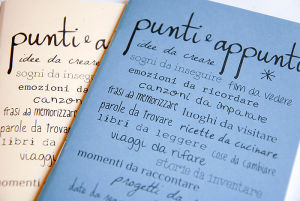 punti e
idee da creare
sogni da inseguire
emozioni da
canzoni da
frasi da memorizzare
parole da trovare
libri da
viaggi
momenti da
punti e appunti
idee da creare
sogni da inseguire film da vedere
emozioni da ricordare
canzoni da imparare
frasi da memorizzare luoghi da visitare
parole da trovare ricette da cucinare
libri da leggere cose da cambiare
viaggi da rifare
storie da inventare
momenti da raccontare
progetti da
date da